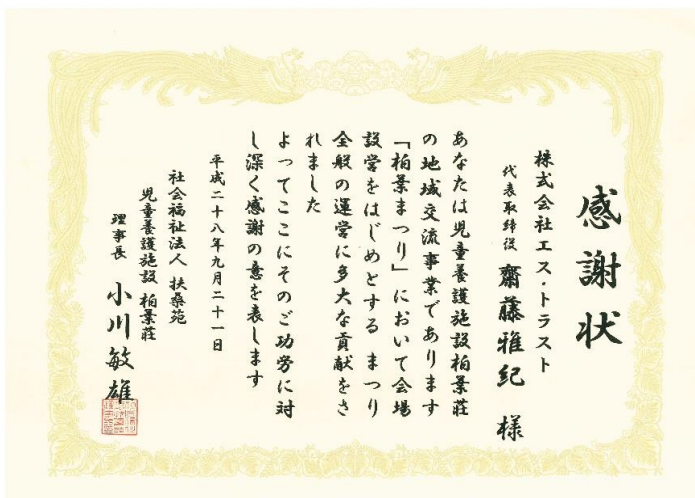 感謝状
株式会社エス・トラスト
代表取締役 齋藤雅紀 様
あなたは児童養護施設柏葉荘
の地域交流事業であります
「柏葉まつり」において会場
設営をはじめとする まつり
全般の運営に多大な貢献をさ
れました
よってここにそのご功労に対
し深く感謝の意を表します
平成二十八年九月二十一日
社会福祉法人 扶桑苑
児童養護施設 柏葉荘
理事長 小川敏雄